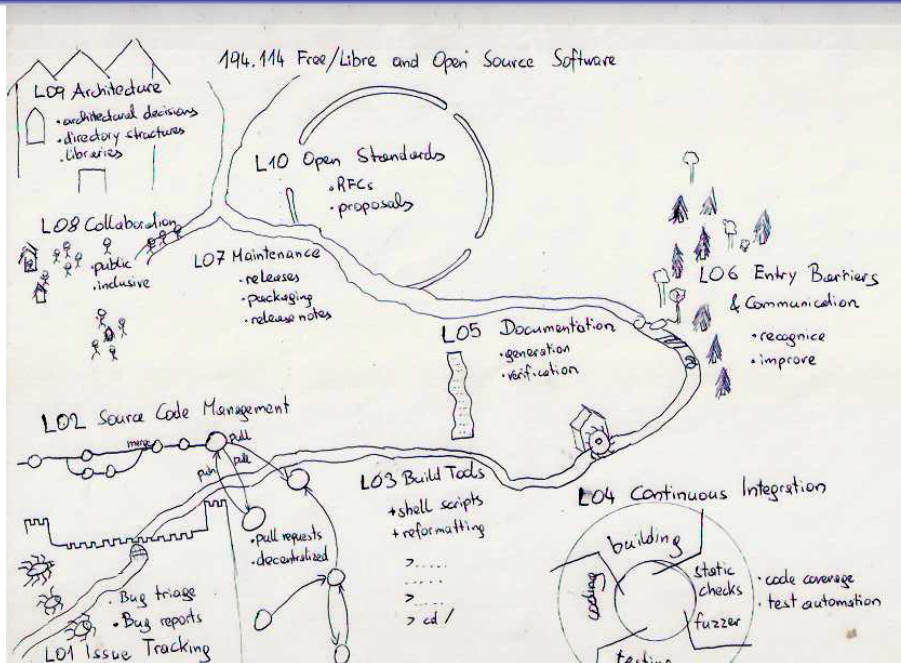 194.114 Free/Libre and Open Source Software
L09 Architecture
• architectural decisions
• directory structures
• libraries
L10 Open Standards
• RFCs
• proposals
L08 Collaboration
• public
• inclusive
L07 Maintenance
• releases
• packaging
• release notes
L06 Entry Barriers
& Communication
• recognice
• improve
L05 Documentation
• generation
• verification
L02 Source Code Management
merge
pull
push
pull
• pull requests
• decentralized
L03 Build Tools
+ shell scripts
+ reformatting
>.....
.....
>.....
> cd /
L04 Continuous Integration
building
coding
static
checks
fuzzer
testing
• code coverage
• test automation
• Bug triage
• Bug reports
L01 Issue Tracking